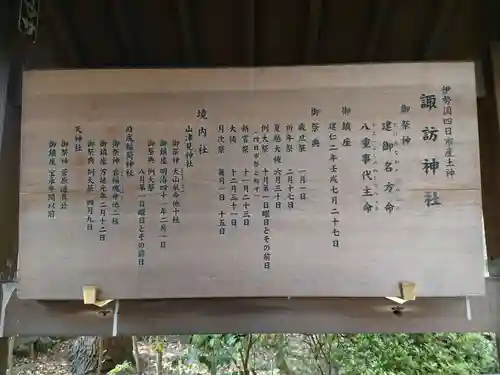 伊勢国四日市産土神
諏訪神社
御祭神
建御名方命
八重事代主命
御鎮座
建仁二年壬戌七月二十七日
御祭典
歳旦祭 一月一日
祈年祭 二月十七日
夏越大祓 六月三十日
例大祭 十月第一日曜とその前日
(四日市祭)
新嘗祭 十一月二十三日
大祓 十二月三十一日
月次祭 毎月一日 十五日
境内社
山津見神社
御祭神 大山祇命他十社
御鎮座 明治四十一年二月一日
御祭典 例大祭
八月第一日曜日とその前日
政成稲荷神社
御祭神 倉稲魂命他二社
御鎮座 万治元年二月十二日
御祭典 四月九日
天神社
御祭神 菅原道真公
御鎮座 宝永年間以前